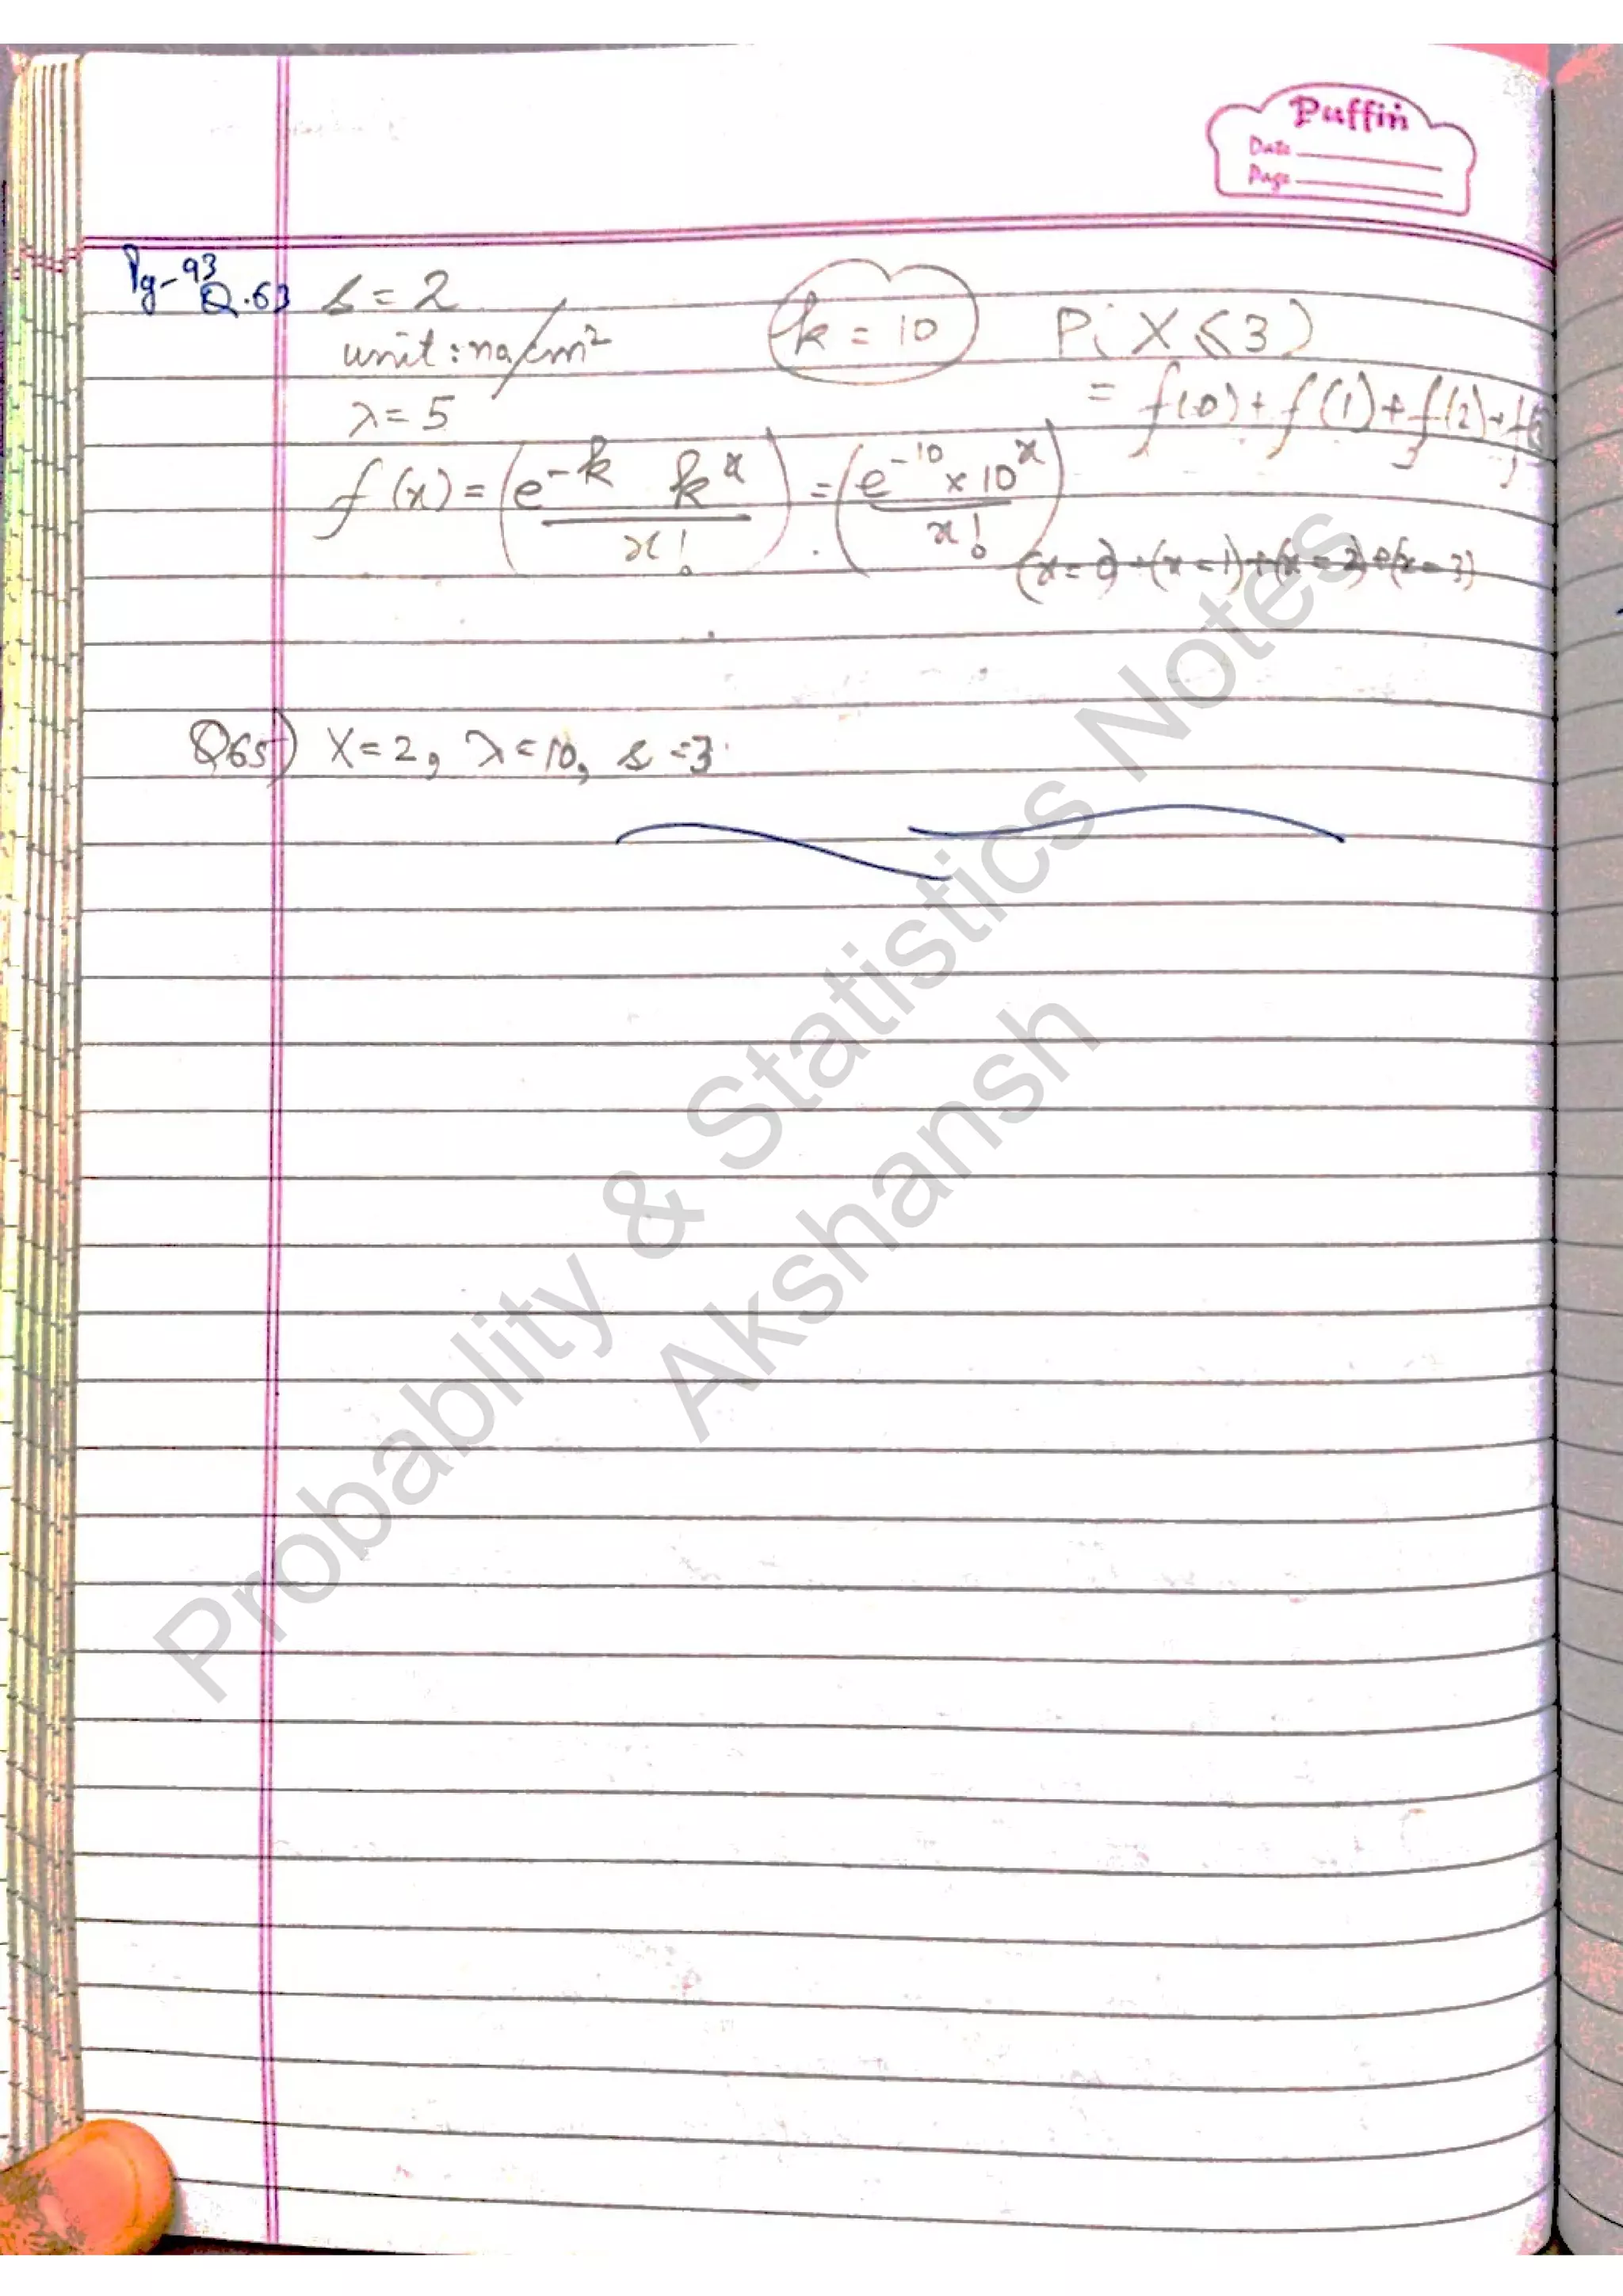 Puffin
Date
Page
Pg-93
Q.63 s = 2 k = 10 P(X ≤ 3)
unit : no/cm²
= f(0) + f(1) + f(2) + f(3)
λ = 5
f(x) = (e^-k k^x / x!) = (e^-10 × 10^x / x!)
(x = 0) + (x = 1) + (x = 2) + (x = 3)
Q65) X = 2, λ = 10, s = 3
Probablity & Statistics Notes
Akshansh